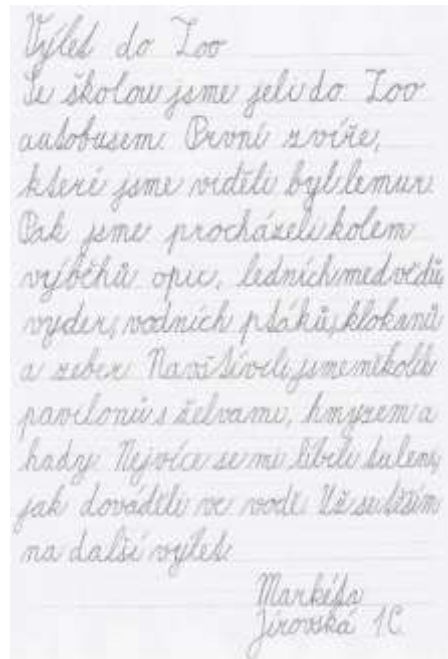 Výlet do Zoo
Se školou jsme jeli do Zoo
autobusem. První zvíře,
které jsme viděli byl lemur.
Pak jsme procházeli kolem
výběhů opic, ledních medvědů,
vyder, vodních ptáků, klokanů
a zeber. Navštívili jsme několik
pavilonů s želvami, hmyzem a
hady. Nejvíce se mi líbili tuleni,
jak dováděli ve vodě. Už se těším
na další výlet.
Markéta
Jírovská 1C